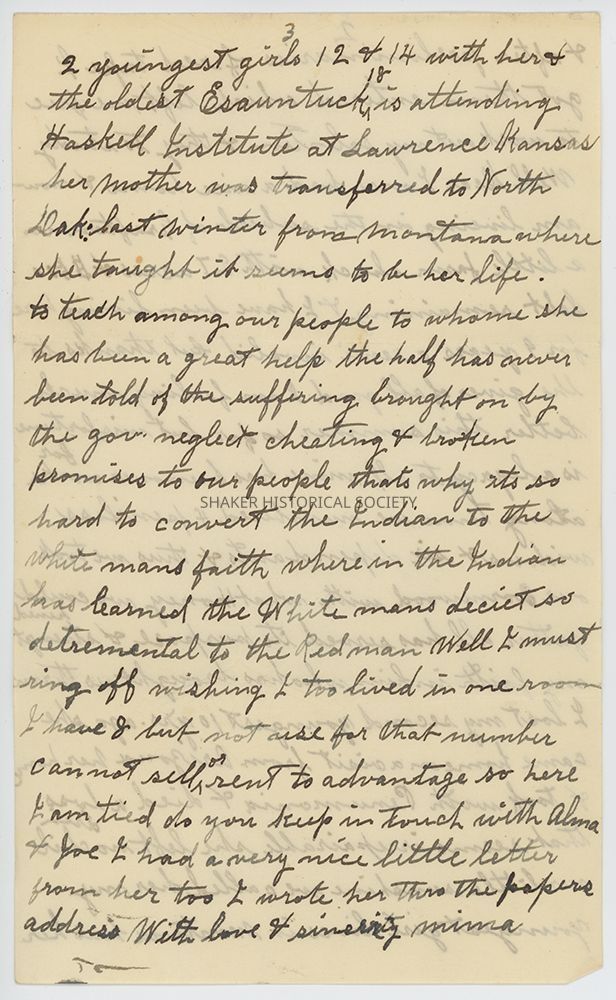 3
2 youngest girls 12 & 14 with her &
the oldest Esauntuck 18 is attending
Haskell Institute at Lawrence Kansas
her mother was transferred to North
Dak: last winter from Montana where
she taught it seems to be her life.
to teach among our people to whome she
has been a great help the half has never
been told of the suffering brought on by
the gov. neglect cheating & broken
promises to our people thats why its so
SHAKER HISTORICAL SOCIETY
hard to convert the Indian to the
white mans faith where in the Indian
has learned the White mans deciet so
detremental to the Redman Well I must
ring off wishing I too lived in one room
I have 8 but not use for that number
cannot sell or rent to advantage so here
I am tied do you keep in touch with Alma
& Joe I had a very nice little letter
from her too I wrote her thro the papers
address With love & sincerity mima